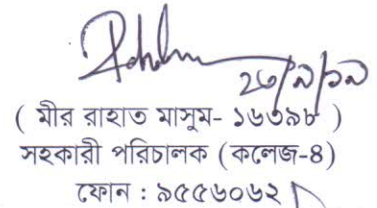 ২৩/৯/১৯
( মীর রাহাত মাসুম- ১৬৩৯৮ )
সহকারী পরিচালক (কলেজ-৪)
ফোন : ৯৫৫৬০৬২